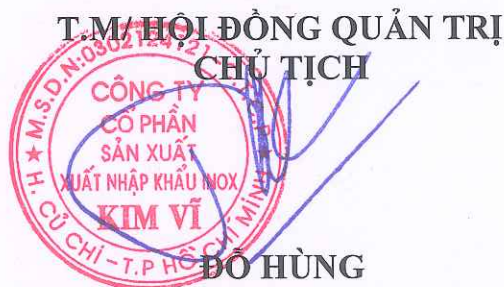 T.M/ HỘI ĐỒNG QUẢN TRỊ
CHỦ TỊCH
M.S.D.N:0302124121
CÔNG TY
CỔ PHẦN
SẢN XUẤT
XUẤT NHẬP KHẨU INOX
KIM VĨ
H. CỦ CHI - T.P HỒ CHÍ MINH
ĐỖ HÙNG